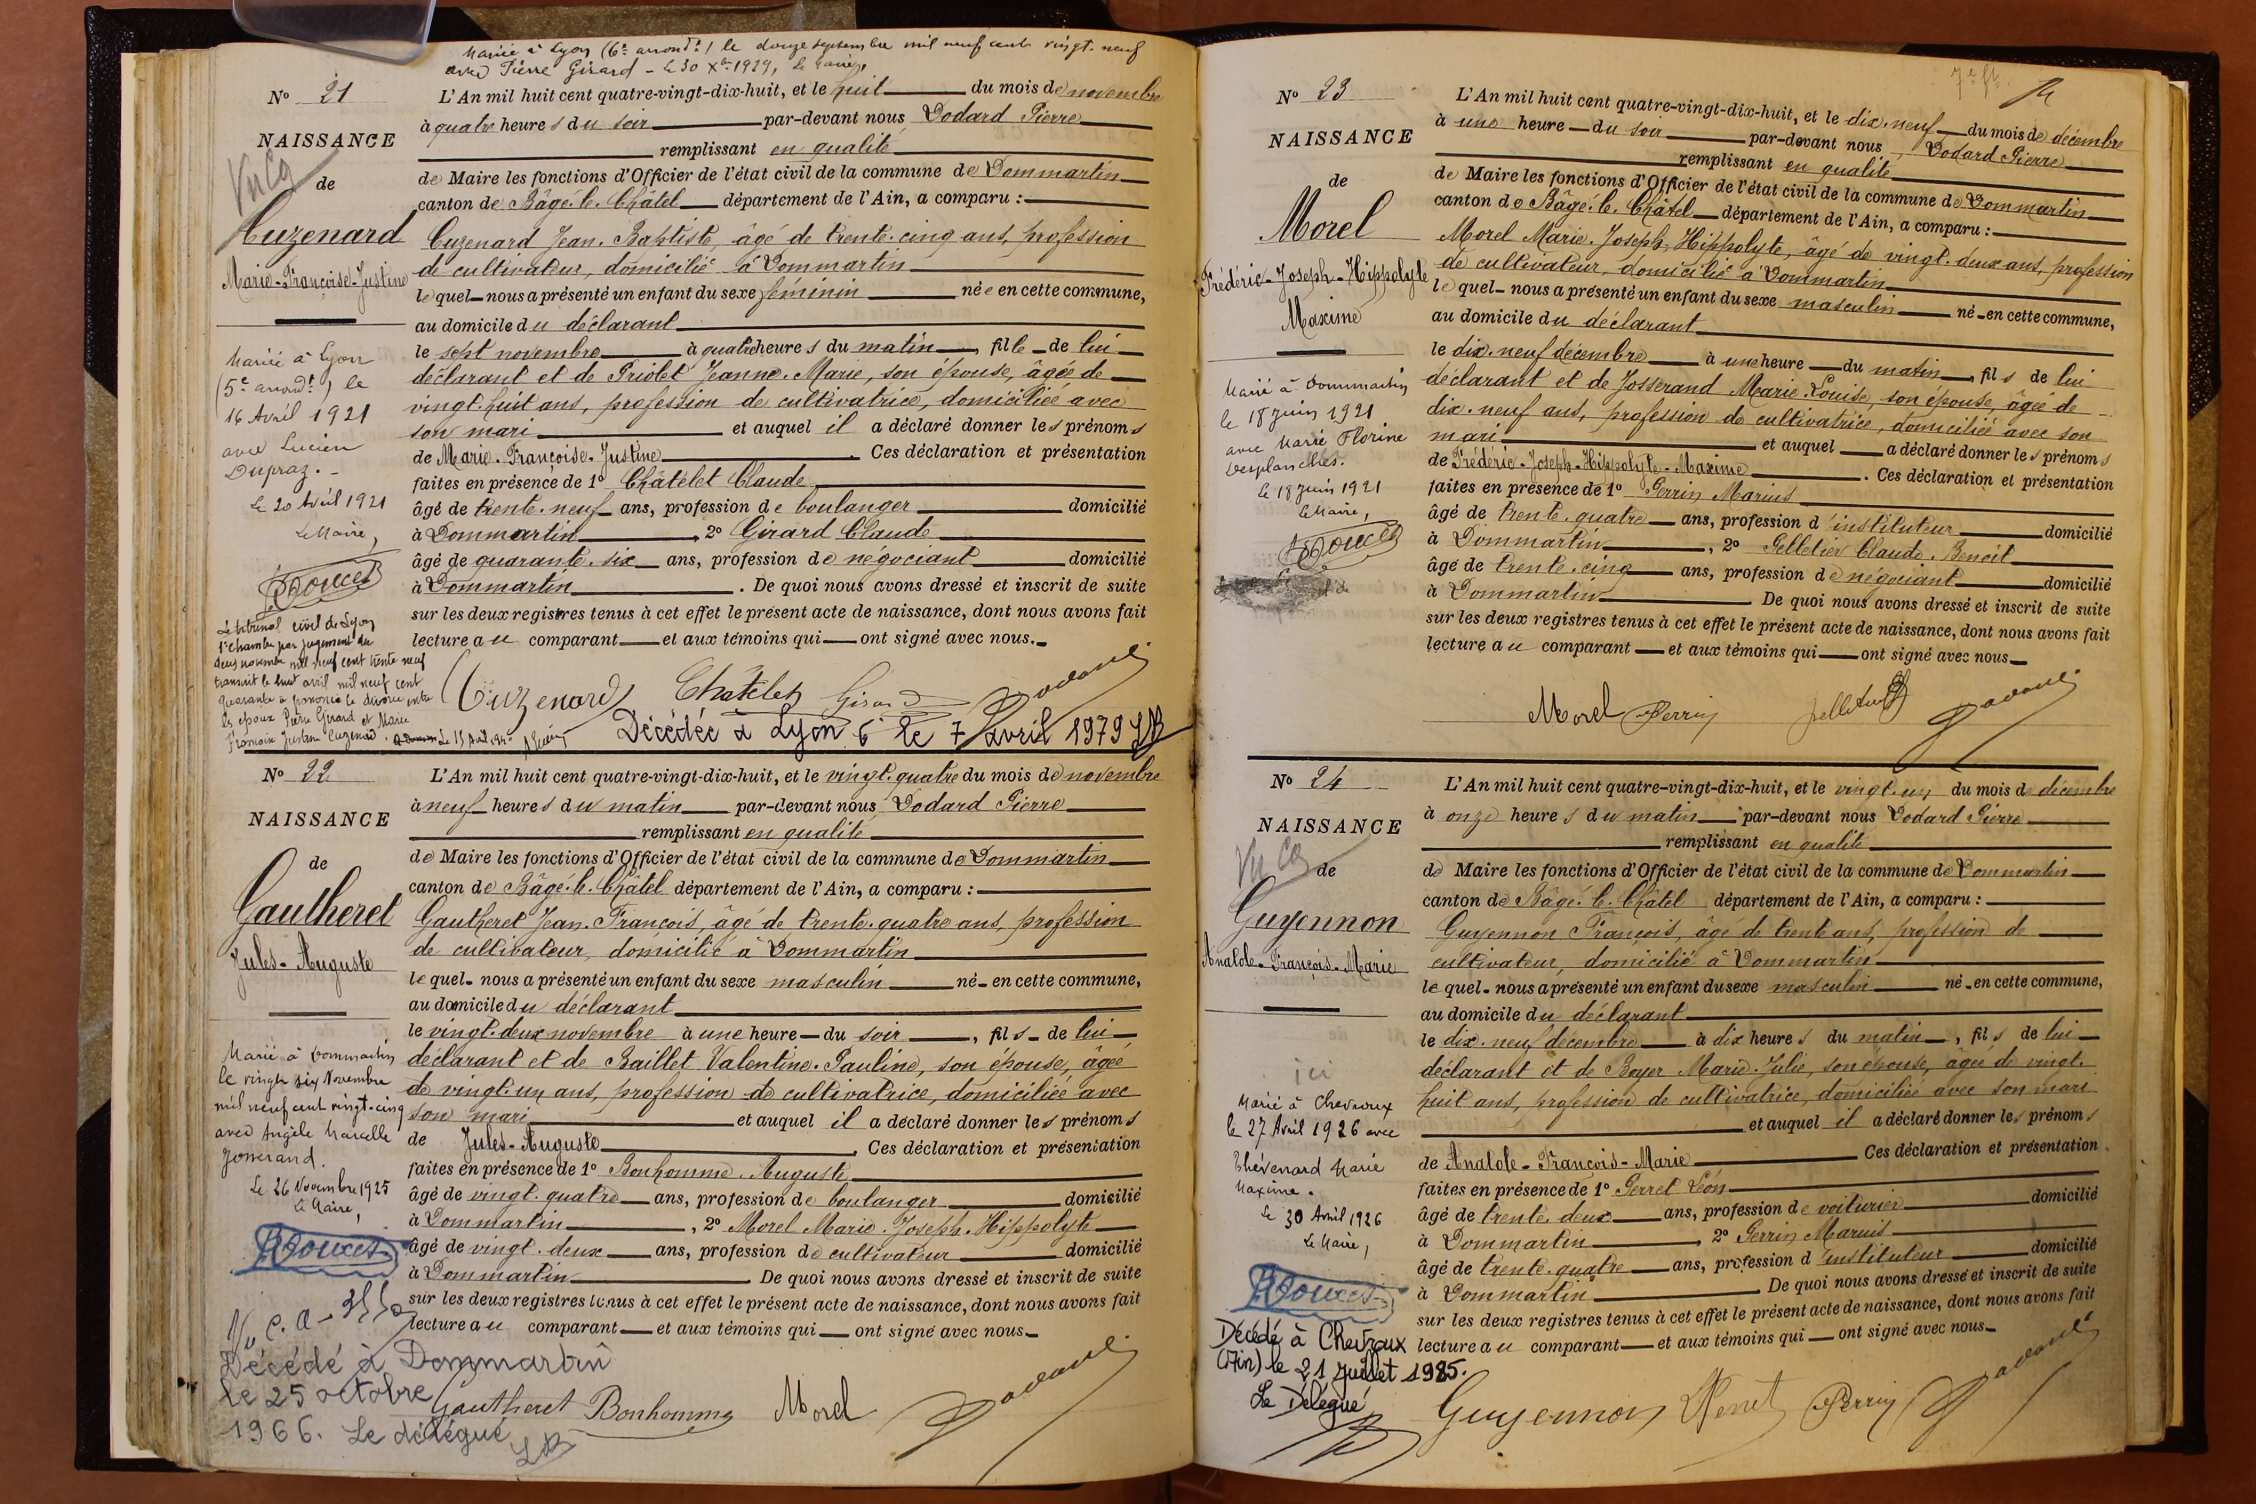 Mariée à Lyon (6e arrondt) le douze septembre mil neuf cent vingt-neuf
avec Pierre Girard - Le 30 Xbre 1929, Le Maire,
No 21
NAISSANCE
Vu
de
Cuzenard
Marie-Françoise-Justine
Mariée à Lyon
(5e arrondt) le
16 Avril 1921
avec Lucien
Dupraz. -
Le 20 Avril 1921
Le Maire,
Doucet
Le tribunal civil de Lyon
1e chambre par jugement du
deux novembre mil neuf cent trente neuf
transcrit le huit avril mil neuf cent
quarante a prononcé le divorce entre
les époux Pierre Girard et Marie
Françoise Justine Cuzenard.
L'An mil huit cent quatre-vingt-dix-huit, et le huit du mois de novembre
à quatre heures du soir par-devant nous Dodard Pierre
remplissant en qualité
de Maire les fonctions d'Officier de l'état civil de la commune de Dommartin
canton de Bâgé-le-Châtel département de l'Ain, a comparu :
Cuzenard Jean-Baptiste, âgé de trente-cinq ans, profession
de cultivateur, domicilié à Dommartin
lequel nous a présenté un enfant du sexe féminin née en cette commune,
au domicile du déclarant
le sept novembre à quatre heures du matin, fille de lui
déclarant et de Priolet Jeanne-Marie, son épouse, âgée de
vingt-huit ans, profession de cultivatrice, domiciliée avec
son mari et auquel il a déclaré donner les prénoms
de Marie-Françoise-Justine. Ces déclaration et présentation
faites en présence de 1o Châtelet Claude
âgé de trente-neuf ans, profession de boulanger domicilié
à Dommartin, 2o Girard Claude
âgé de quarante-six ans, profession de négociant domicilié
à Dommartin. De quoi nous avons dressé et inscrit de suite
sur les deux registres tenus à cet effet le présent acte de naissance, dont nous avons fait
lecture au comparant et aux témoins qui ont signé avec nous.
Cuzenard Châtelet Girard Dodard
Décédée à Lyon 6e le 7 avril 1979
No 22
NAISSANCE
de
Gautheret
Jules-Auguste
Marié à Dommartin
le vingt six Novembre
mil neuf cent vingt-cinq
avec Angèle Marcelle
Josserand.
Le 26 Novembre 1925
Le Maire,
Doucet
Décédé à Dommartin
le 25 octobre
1966. Le délégué
L'An mil huit cent quatre-vingt-dix-huit, et le vingt-quatre du mois de novembre
à neuf heures du matin par-devant nous Dodard Pierre
remplissant en qualité
de Maire les fonctions d'Officier de l'état civil de la commune de Dommartin
canton de Bâgé-le-Châtel département de l'Ain, a comparu :
Gautheret Jean-François, âgé de trente-quatre ans, profession
de cultivateur, domicilié à Dommartin
lequel nous a présenté un enfant du sexe masculin né en cette commune,
au domicile du déclarant
le vingt-deux novembre à une heure du soir, fils de lui
déclarant et de Baillet Valentine-Pauline, son épouse, âgée
de vingt-un ans, profession de cultivatrice, domiciliée avec
son mari et auquel il a déclaré donner les prénoms
de Jules-Auguste. Ces déclaration et présentation
faites en présence de 1o Bonhomme Auguste
âgé de vingt-quatre ans, profession de boulanger domicilié
à Dommartin, 2o Morel Marie-Joseph-Hippolyte
âgé de vingt-deux ans, profession de cultivateur domicilié
à Dommartin. De quoi nous avons dressé et inscrit de suite
sur les deux registres tenus à cet effet le présent acte de naissance, dont nous avons fait
lecture au comparant et aux témoins qui ont signé avec nous
Gautheret Bonhomme Morel Dodard
No 23
NAISSANCE
de
Morel
Frédéric-Joseph-Hippolyte
Maxime
Marié à Dommartin
le 18 juin 1921
avec Marie Florine
Desplanches.
Le 18 juin 1921
Le Maire,
Doucet
L'An mil huit cent quatre-vingt-dix-huit, et le dix-neuf du mois de décembre
à une heure du soir par-devant nous, Dodard Pierre
remplissant en qualité
de Maire les fonctions d'Officier de l'état civil de la commune de Dommartin
canton de Bâgé-le-Châtel département de l'Ain, a comparu :
Morel Marie-Joseph-Hippolyte, âgé de vingt-deux ans, profession
de cultivateur, domicilié à Dommartin
lequel nous a présenté un enfant du sexe masculin né en cette commune,
au domicile du déclarant
le dix-neuf décembre à une heure du matin, fils de lui
déclarant et de Josserand Marie-Louise, son épouse, âgée de
dix-neuf ans, profession de cultivatrice, domiciliée avec son
mari et auquel a déclaré donner les prénoms
de Frédéric-Joseph-Hippolyte-Maxime. Ces déclaration et présentation
faites en présence de 1o Perrin Marius
âgé de trente-quatre ans, profession d'instituteur domicilié
à Dommartin, 2o Pelletier Claude-Benoit
âgé de trente-cinq ans, profession de négociant domicilié
à Dommartin De quoi nous avons dressé et inscrit de suite
sur les deux registres tenus à cet effet le présent acte de naissance, dont nous avons fait
lecture au comparant et aux témoins qui ont signé avec nous
Morel Perrin Pelletier Dodard
No 24
NAISSANCE
Vu
de
Guyennon
Anatole-François-Marie
ici
Marié à Chevroux
le 27 Avril 1926 avec
Thévenard Marie
Maxime.
Le 30 Avril 1926
Le Maire,
Doucet
Décédé à Chevroux
(Ain) le 21 Juillet 1985.
Le Délégué
L'An mil huit cent quatre-vingt-dix-huit, et le vingt-un du mois de décembre
à onze heures du matin par-devant nous Dodard Pierre
remplissant en qualité
de Maire les fonctions d'Officier de l'état civil de la commune de Dommartin
canton de Bâgé-le-Châtel département de l'Ain, a comparu :
Guyennon François, âgé de trente ans, profession de
cultivateur, domicilié à Dommartin
lequel nous a présenté un enfant du sexe masculin né en cette commune,
au domicile du déclarant
le dix-neuf décembre à dix heures du matin, fils de lui
déclarant et de Boyer Marie-Julie, son épouse, âgée de vingt-
huit ans, profession de cultivatrice, domiciliée avec son mari
et auquel il a déclaré donner les prénoms
de Anatole-François-Marie Ces déclaration et présentation
faites en présence de 1o Perret Léon
âgé de trente-deux ans, profession de voiturier domicilié
à Dommartin, 2o Perrin Marius
âgé de trente-quatre ans, profession d'instituteur domicilié
à Dommartin De quoi nous avons dressé et inscrit de suite
sur les deux registres tenus à cet effet le présent acte de naissance, dont nous avons fait
lecture au comparant et aux témoins qui ont signé avec nous
Guyennon Perret Perrin Dodard